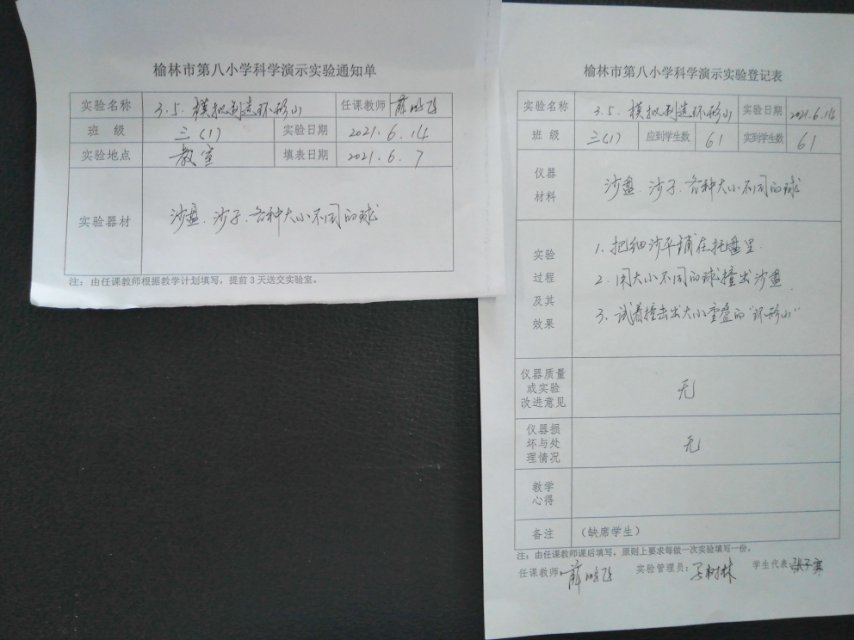 榆林市第八小学科学演示实验通知单
实验名称 3.5. 模拟制造环形山 任课教师
班 级 三(1) 实验日期 2021.6.14
实验地点 教室 填表日期 2021.6.7
实验器材 沙盘、沙子、各种大小不同的球
注：由任课教师根据教学计划填写，提前3天送交实验室。
榆林市第八小学科学演示实验登记表
实验名称 3.5. 模拟制造环形山 实验日期 2021.6.14
班 级 三(1) 应到学生数 61 实到学生数 61
仪器
材料
沙盘、沙子、各种大小不同的球
实验
过程
及其
效果
1. 把细沙平铺在托盘里
2. 用大小不同的球撞击沙盘
3. 试着撞击出大小重叠的“环形山”
仪器质量
或实验
改进意见
无
仪器损
坏与处
理情况
无
教学
心得
备注 （缺席学生）
注：由任课教师课后填写。原则上要求每做一次实验填写一份。
任课教师： 实验管理员： 学生代表：